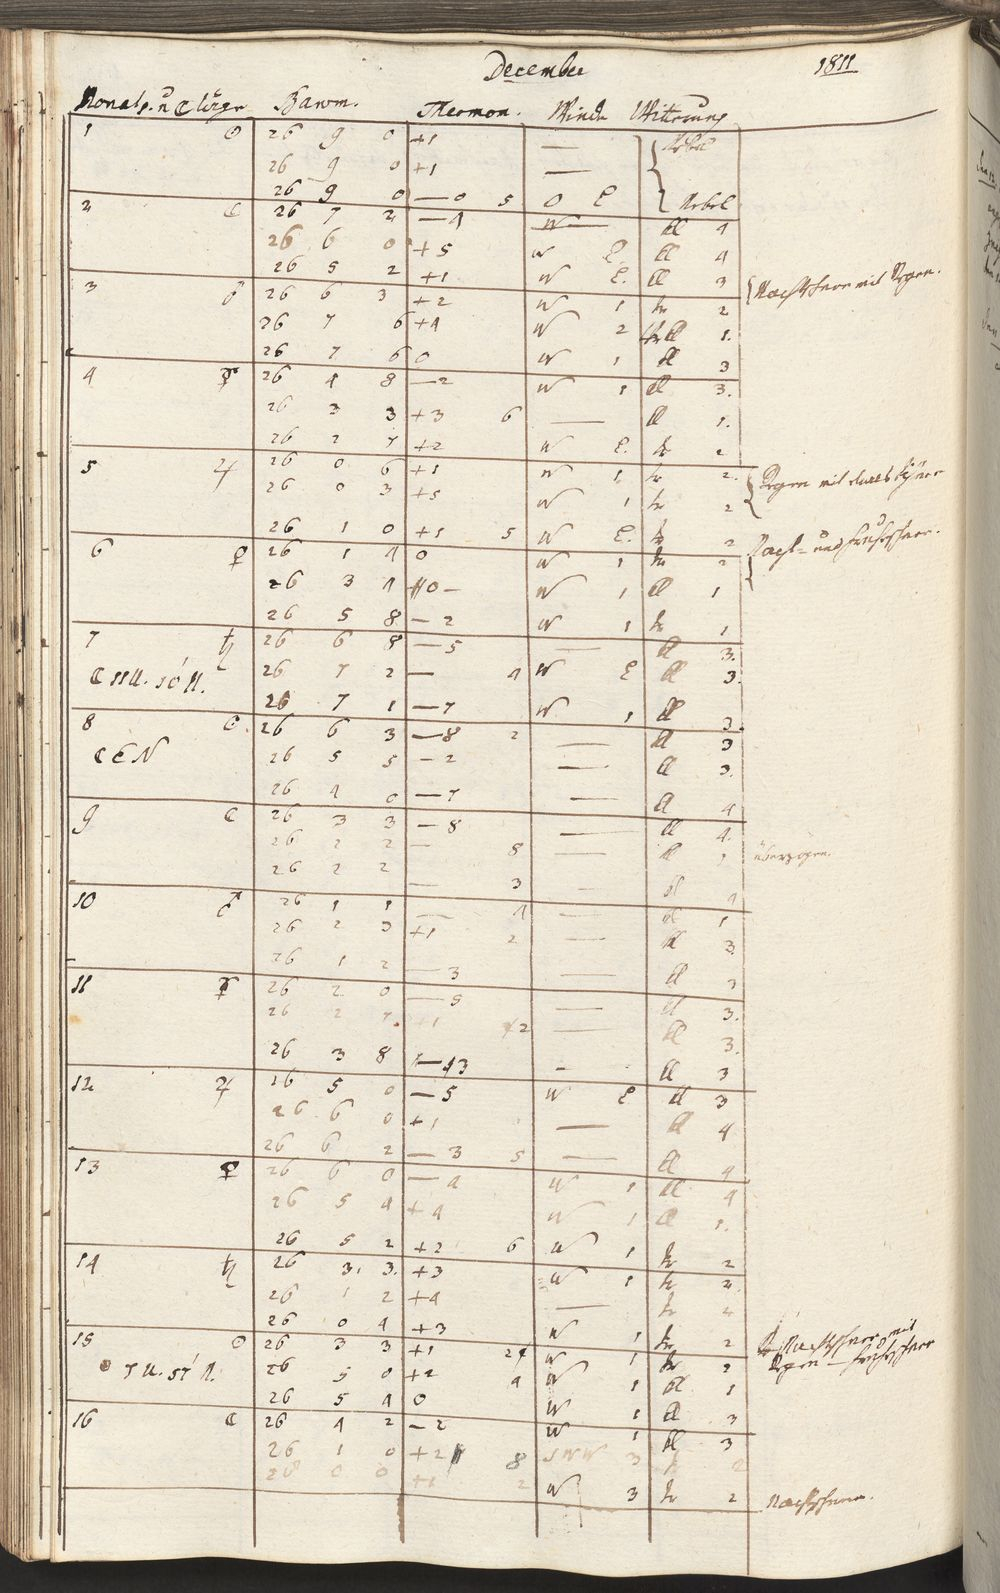 December 1811
Monats. u ☾ läge Barom. Thermom. Winde Witterung
1 ☉ 26 9 0 +1 — Nebel
26 9 0 +1 —
26 9 0 —0 5 O E Nebel
2 ☾ 26 7 2 —4 W— tll 4
26 6 0 +5 W E tll 4
26 5 2 +1 W E. tll 3
3 ♂ 26 6 3 +2 W 1 tr 2 Nachtschnee mit Regen.
26 7 6 +4 W 2 tll 1.
26 7 6 0 W 1 tll 3
4 ☿ 26 4 8 —2 W 1 tll 3.
26 3 3 +3 6 — tll 1.
26 2 7 +2 W E. tr 2
5 ♃ 26 0 6 +1 W 1 tr 2. Regen mit
26 0 3 +5 W 1 tr 2
26 1 0 +1 5 W E. tr 2
6 ♀ 26 1 4 0 W 1 tr 2 Nacht- und Frühschnee.
26 3 4 0— W 1 tll 1
26 5 8 —2 W 1 tr 1
7 ♄ 26 6 8 —5 — tll 3.
☾ 11 U. 10' 26 7 2 — 4 W E tll 3.
26 7 1 —7 W 1 tll 3.
8 ☉ 26 6 3 —8 2 — tll 3
☾ E N 26 5 5 —2 — tll 3.
26 4 0 —7 — tll 4
9 ☾ 26 3 3 —8 — tll 4.
26 2 2 — 8 — tll 1 überzogen.
26 2 2 — 3 — tll 4
10 ♂ 26 1 1 — 4 — tll 1
26 2 3 +1 2 — tll 3
26 1 2 —3 — tll 3
11 ☿ 26 2 0 —5 — tll 3.
26 2 7. +1 2 — tll 3.
26 3 8 —3 — tll 3
12 ♃ 26 5 0 —5 W E tll 3
26 6 0 +1 — tll 4
26 6 2 —3 5 — tll 4
13 ♀ 26 6 0 —4 W 1 tll 4
26 5 4 +4 W 1 tll 1.
26 5 2 +2 6 W 1 tr 2
14 ♄ 26 3. 3. +3 W 1 tr 2
26 1 2 +4 — tr 2
26 0 4 +3 W 1 tr 2
15 ☉ 26 3 3 +1 2 W 1 tr 2 Nachtschnee mit
Regen — Frühschnee
7 U. 51' 26 5 0 +2 4 W 1 tll 1
26 5 4 0 W 1 tll 3
16 ☾ 26 4 2 —2 W 1 tll 3
26 1 0 +2 8 SWW 3 tr 2
26 0 0 +1 2 W 3 tr 2 Nachtschnee.